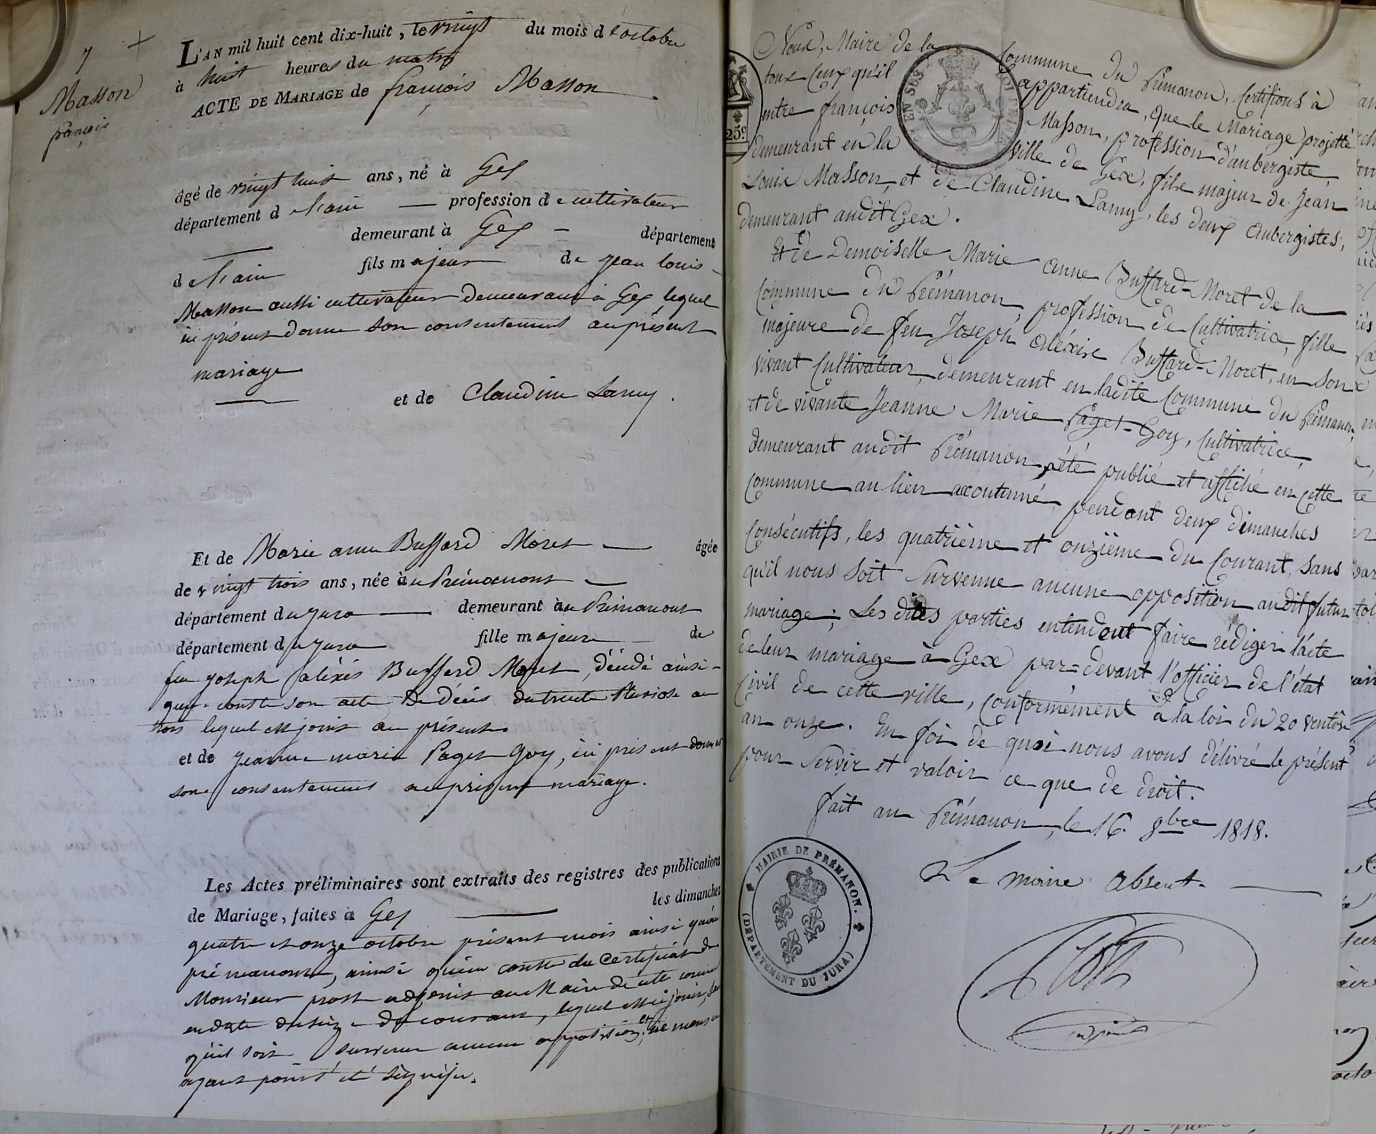 7
Masson
françois
L'AN mil huit cent dix-huit, le vingt du mois d'octobre
à huit heures du matin
ACTE DE MARIAGE de françois Masson
âgé de vingt huit ans, né à Gex
département d el'ain profession d e cultivateur
demeurant à Gex département
d el'ain fils majeur de jean louis
Masson aussi cultivateur demeurant à Gex lequel
ici présent donne son consentement au présent
mariage
et de Claudine Lamy.
Et de Marie anne Buffard Moret âgée
de vingt trois ans, née à u Prémanont
département du jura demeurant au Prémanont
département du jura fille majeure de
feu joseph aléxis Buffard Moret, décédé ainsi
que conste son acte de décès du trente
trois lequel est joint au présent
et de jeanne marie Paget Goy, ici présent donne
son consentement au présent mariage.
Les Actes préliminaires sont extraits des registres des publications
de Mariage, faites à Gex les dimanches
quatre et onze octobre présent mois ainsi qu'au
prémanont, ainsi qu'en conste du certificat de
Monsieur prost adjoint au Maire de cette commune
en date du seize du courant, lequel est ci joint, sans
qu'il soit survenu aucune opposition, et ne nous en
ayant point été signifié.
25c
Nous, Maire de la Commune du Prémanon, Certifions à
tous Ceux qu'il appartiendra, que le Mariage projetté
entre françois Masson, profession d'aubergiste,
demeurant en la ville de Gex, fils majeur de Jean
Louis Masson, et de Claudine Lamy, les deux aubergistes,
demeurant audit Gex.
Et de Demoiselle Marie anne Buffard-Moret de la
Commune du Prémanon, profession de Cultivatrice, fille
majeure de feu Joseph aléxise Buffard-Moret, en son
vivant Cultivateur, demeurant en ladite Commune du Prémanon,
et de vivante Jeanne Marie Paget-Goy, Cultivatrice,
demeurant audit Prémanon, a été publié et affiché en cette
Commune au lieu accoutumé, pendant deux dimanches
Consécutifs, les quatrième et onzième du Courant, sans
qu'il nous soit survenue aucune opposition audit futur
mariage; Les dites parties entendent faire rédiger l'acte
de leur mariage à Gex par-devant l'officier de l'état
Civil de cette ville, conformément à la loi du 20 ventôse
an onze. En foi de quoi nous avons délivré le présent
pour servir et valoir ce que de droit.
fait au Prémanon, le 16. 8bre 1818.
Le maire absent
MAIRIE DE PRÉMANON.
(DÉPARTEMENT DU JURA)